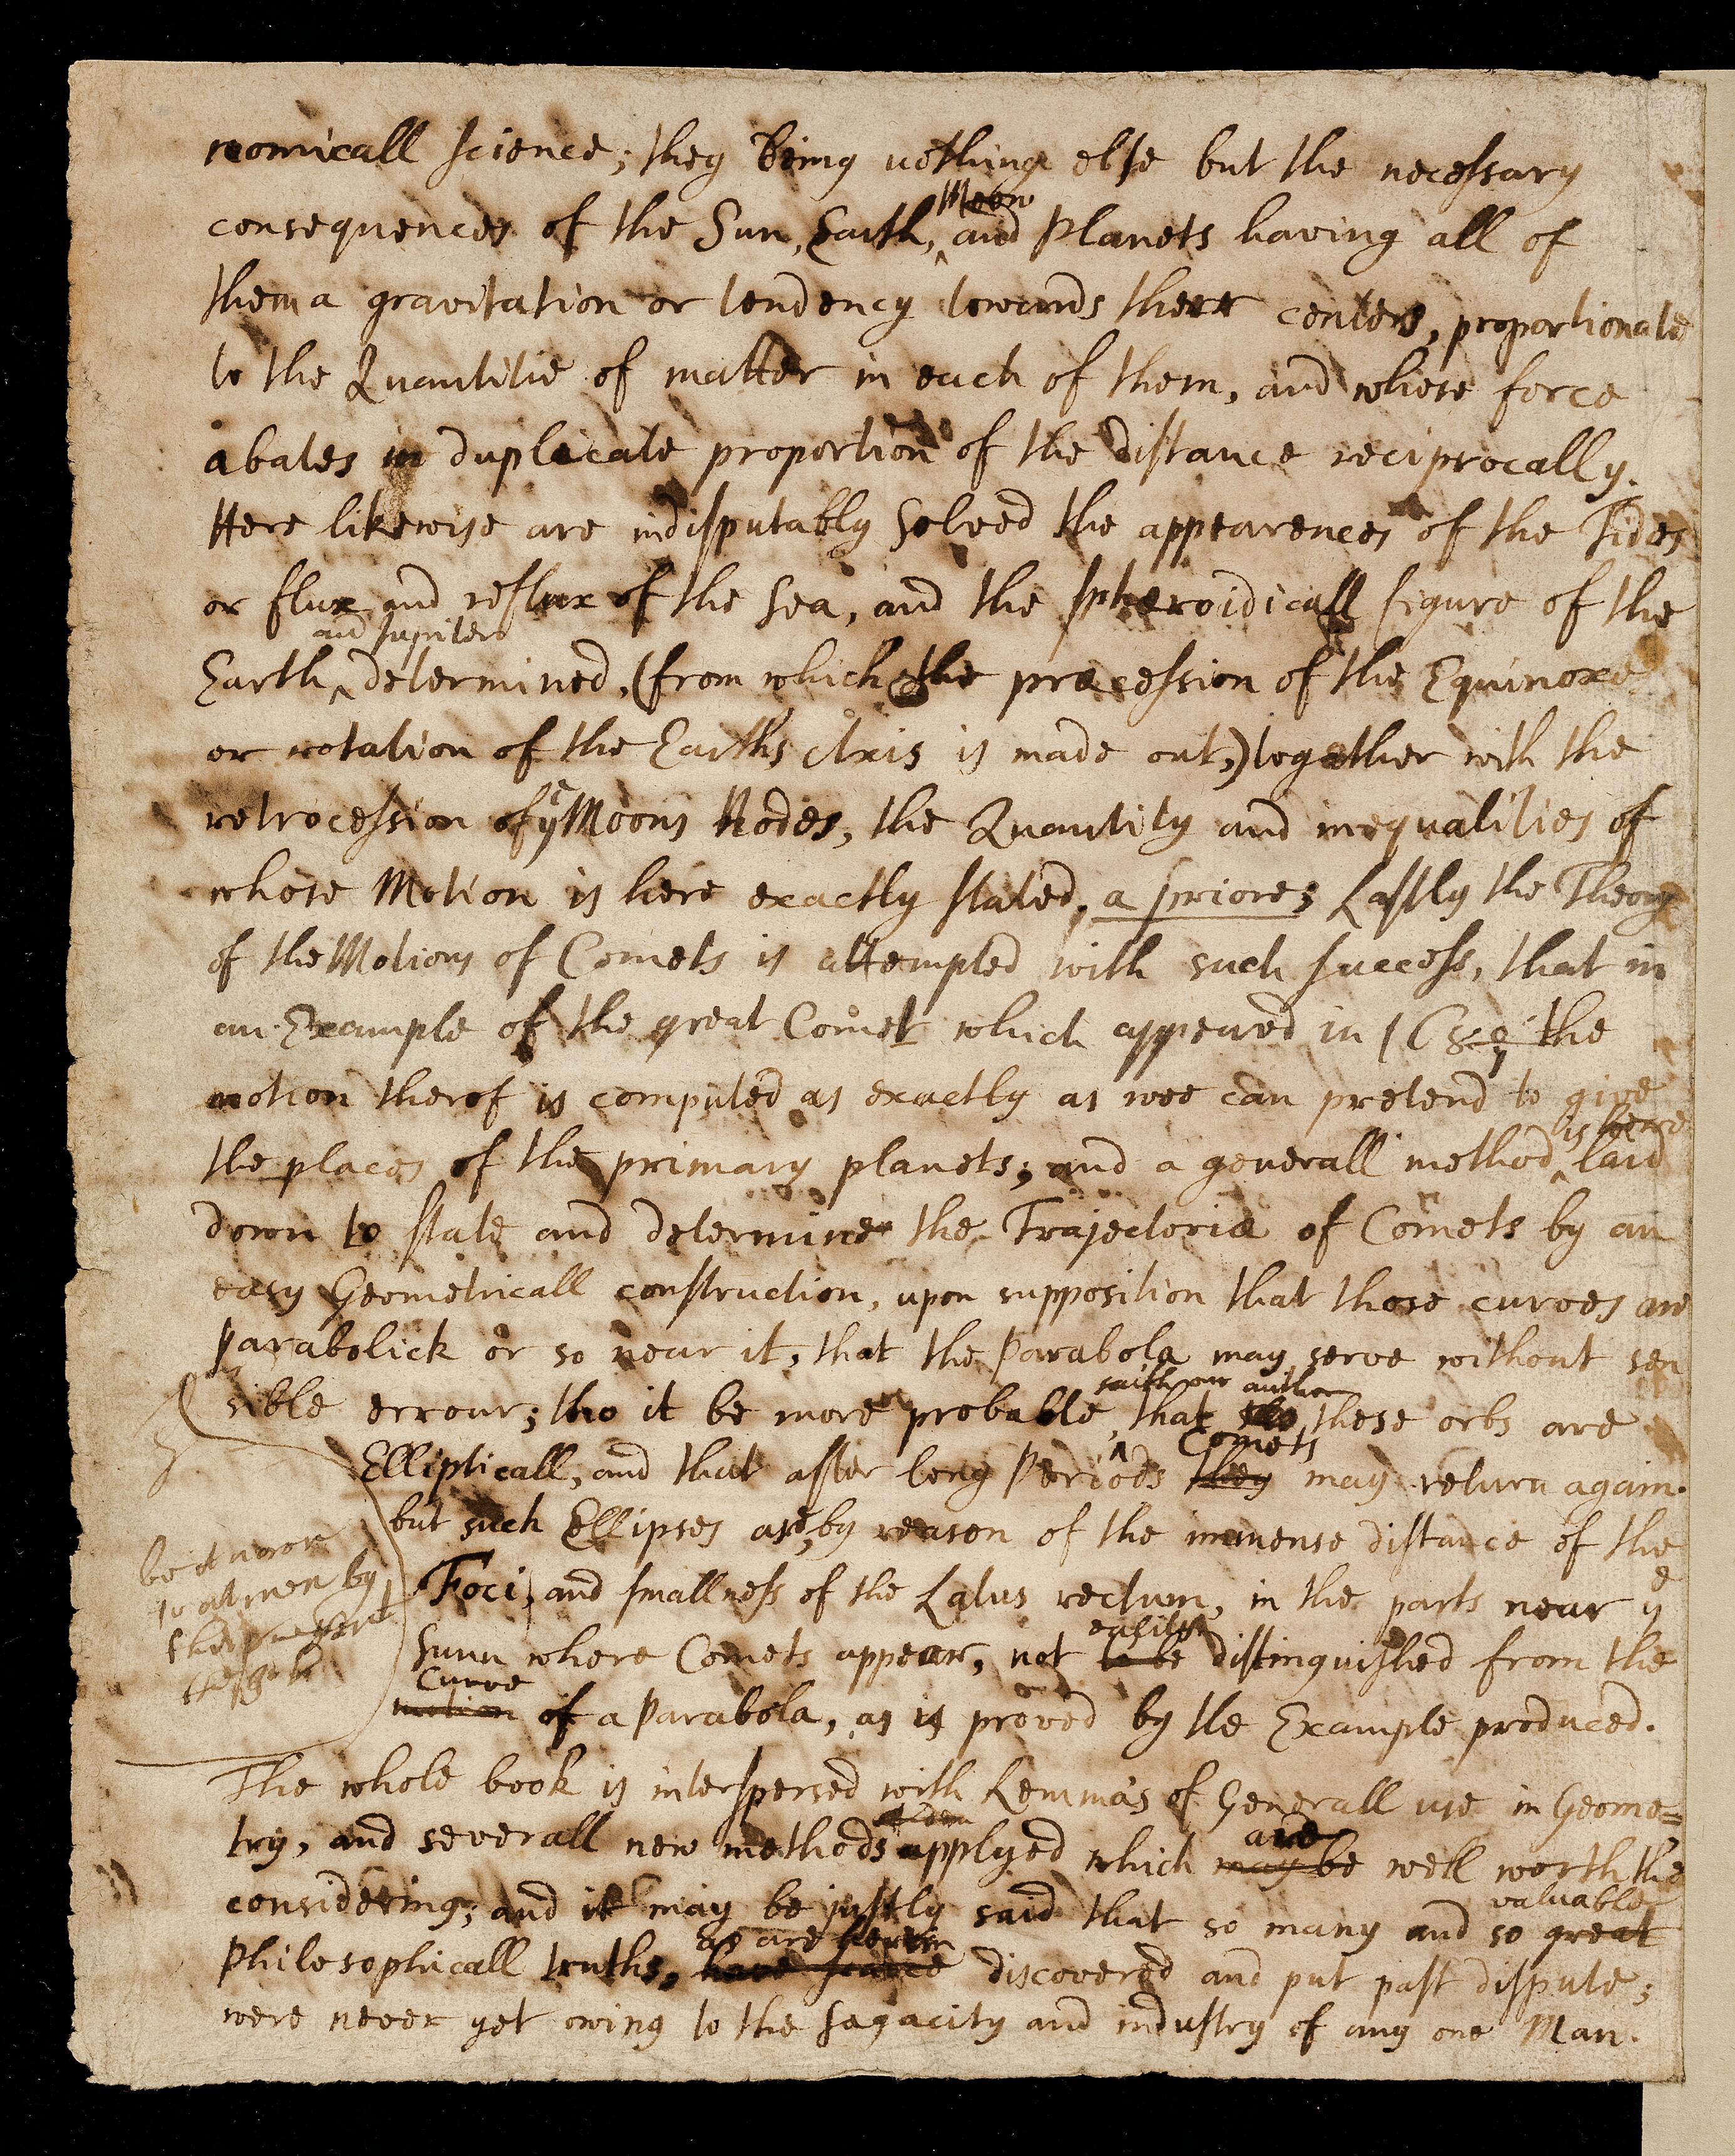 nomicall science; they being nothing else but the necessary
Moon
consequences of the Sun, Earth, ^ and Planets having all of
them a gravitation or tendency towards their centers, proportionate
to the Quantitie of matter in each of them, and whose force
abates in duplicate proportion of the distance reciprocally.
Here likewise are indisputably solved the appearences of the Tides
or flux and reflux of the Sea, and the spheroidicall figure of the
and Jupiters
Earth ^ determined, (from which the precession of the Equinoxe
or rotation of the Earths Axis is made out,) together with the
retrocession of yᵉ Moons Nodes, the Quantity and inequalities of
whose Motion is here exactly stated, a priore; Lastly the Theory
of the Motions of Comets is attempted with such success, that in
an Example of the great Comet which appeared in the
motion therof is computed as exactly as wee can pretend to give
is here
the places of the primary planets; and a generall method ^ laid
down to state and determine the Trajectoria of Comets by an
easy Geometricall construction, upon supposition that those curves are
Parabolick or so near it, that the Parabola may serve without sen
saith our author
sible errour; tho it be more probable, ^ that these orbs are
Comets
Ellipticall, and that after long Periods they may return again.
but such Ellipses are, by reason of the immense distance of the
Foci, and smallness of the Latus rectum, in the parts near yᵉ
easily
Sunn where Comets appear, not to be distinguished from the
Curve
motion of a Parabola, as is proved by the Example produced.
The whole book is interspersed with Lemma's of Generall use in Geome=
try, and severall new methods applyed which
are
may be well worth the
valuable
considering; and it may be justly said that so many and so great
as are herein
Philosophicall truths, have scarce discovered and put past dispute;
were never yet owing to the sagacity and industry of any one Man.